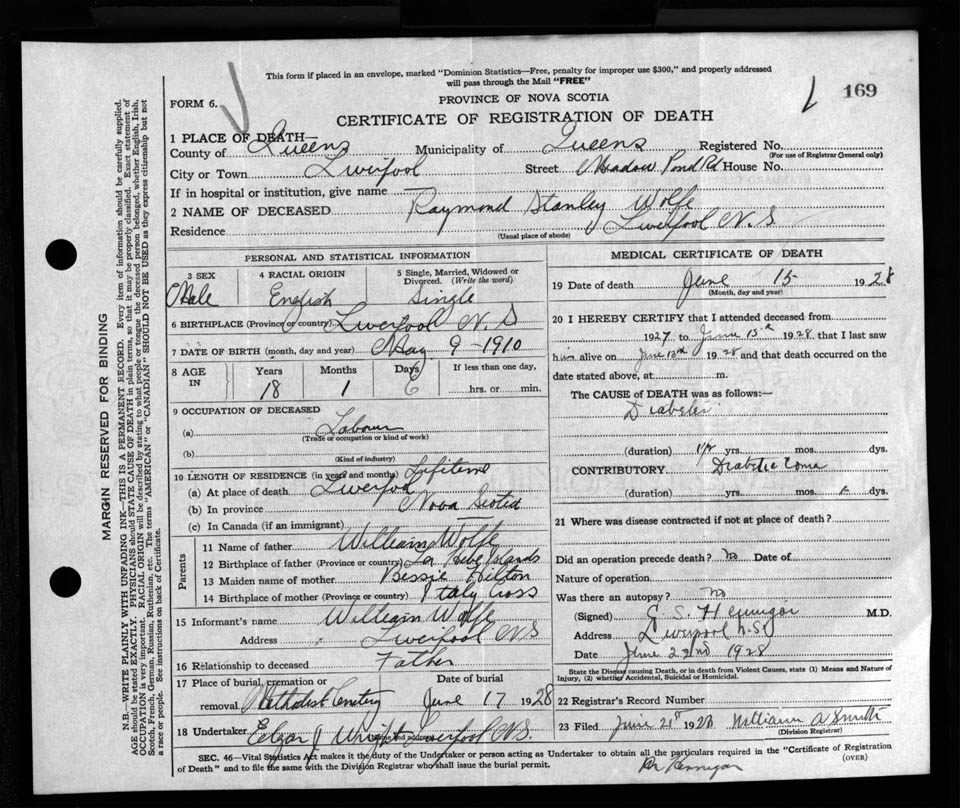 This form if placed in an envelope, marked "Dominion Statistics—Free, penalty for improper use $300," and properly addressed
will pass through the Mail "FREE"
FORM 6.
PROVINCE OF NOVA SCOTIA
169
CERTIFICATE OF REGISTRATION OF DEATH
1 PLACE OF DEATH—
County of Queens Municipality of Queens Registered No.
(For use of Registrar General only)
City or Town Liverpool Street Meadow Pond Rd House No.
If in hospital or institution, give name
2 NAME OF DECEASED Raymond Stanley Wolfe
Residence Liverpool N.S
(Usual place of abode)
PERSONAL AND STATISTICAL INFORMATION
3 SEX 4 RACIAL ORIGIN 5 Single, Married, Widowed or
Divorced. (Write the word)
Male English Single
6 BIRTHPLACE (Province or country) Liverpool N.S
7 DATE OF BIRTH (month, day and year) May 9-1910
8 AGE IN Years Months Days If less than one day,
18 1 6 hrs. or min.
9 OCCUPATION OF DECEASED
(a) Labour
(Trade or occupation or kind of work)
(b)
(Kind of industry)
10 LENGTH OF RESIDENCE (in years and months) Lifetime
(a) At place of death Liverpool
(b) In province Nova Scotia
(c) In Canada (if an immigrant)
Parents
11 Name of father William Wolfe
12 Birthplace of father (Province or country) La Have Islands
13 Maiden name of mother Bessie Hilton
14 Birthplace of mother (Province or country) Italy Cross
15 Informant's name William Wolfe
Address Liverpool N.S
16 Relationship to deceased Father
17 Place of burial, cremation or Date of burial
removal Methodist Cemetery June 17 1928
18 Undertaker Wright Liverpool N.S.
Name and address
MEDICAL CERTIFICATE OF DEATH
19 Date of death June 15 1928
(Month, day and year)
20 I HEREBY CERTIFY that I attended deceased from
1927 to June 15th 1928 that I last saw
him alive on June 13th 1928 and that death occurred on the
date stated above, at m.
The CAUSE of DEATH was as follows:—
Diabetes
(duration) 1½ yrs. mos. dys.
CONTRIBUTORY Diabetic Coma
(duration) yrs. mos. dys.
21 Where was disease contracted if not at place of death?
Did an operation precede death? no Date of
Nature of operation
Was there an autopsy? no
(Signed) E. S. M.D.
Address Liverpool N.S.
Date June 22nd 1928
State the Disease causing Death, or in death from Violent Causes, state (1) Means and Nature of
Injury, (2) whether Accidental, Suicidal or Homicidal.
22 Registrar's Record Number
23 Filed June 21st 1928 William A Smith
(Division Registrar)
SEC. 46—Vital Statistics Act makes it the duty of the Undertaker or person acting as Undertaker to obtain all the particulars required in the "Certificate of Registration
of Death" and to file the same with the Division Registrar who shall issue the burial permit.
(OVER)
MARGIN RESERVED FOR BINDING
N.B.—WRITE PLAINLY WITH UNFADING INK—THIS IS A PERMANENT RECORD. Every item of information should be carefully supplied.
AGE should be stated EXACTLY. PHYSICIANS should STATE CAUSE OF DEATH in plain terms, so that it may be properly classified. Exact statement of
OCCUPATION is very important. RACIAL ORIGIN will be described by stating to what people or tongue the deceased person belonged, whether English, Irish,
Scotch, French, German, Russian, Ruthenian, etc. The terms "AMERICAN" or "CANADIAN" SHOULD NOT BE USED as they express citizenship but not
a race or people. See instructions on back of Certificate.